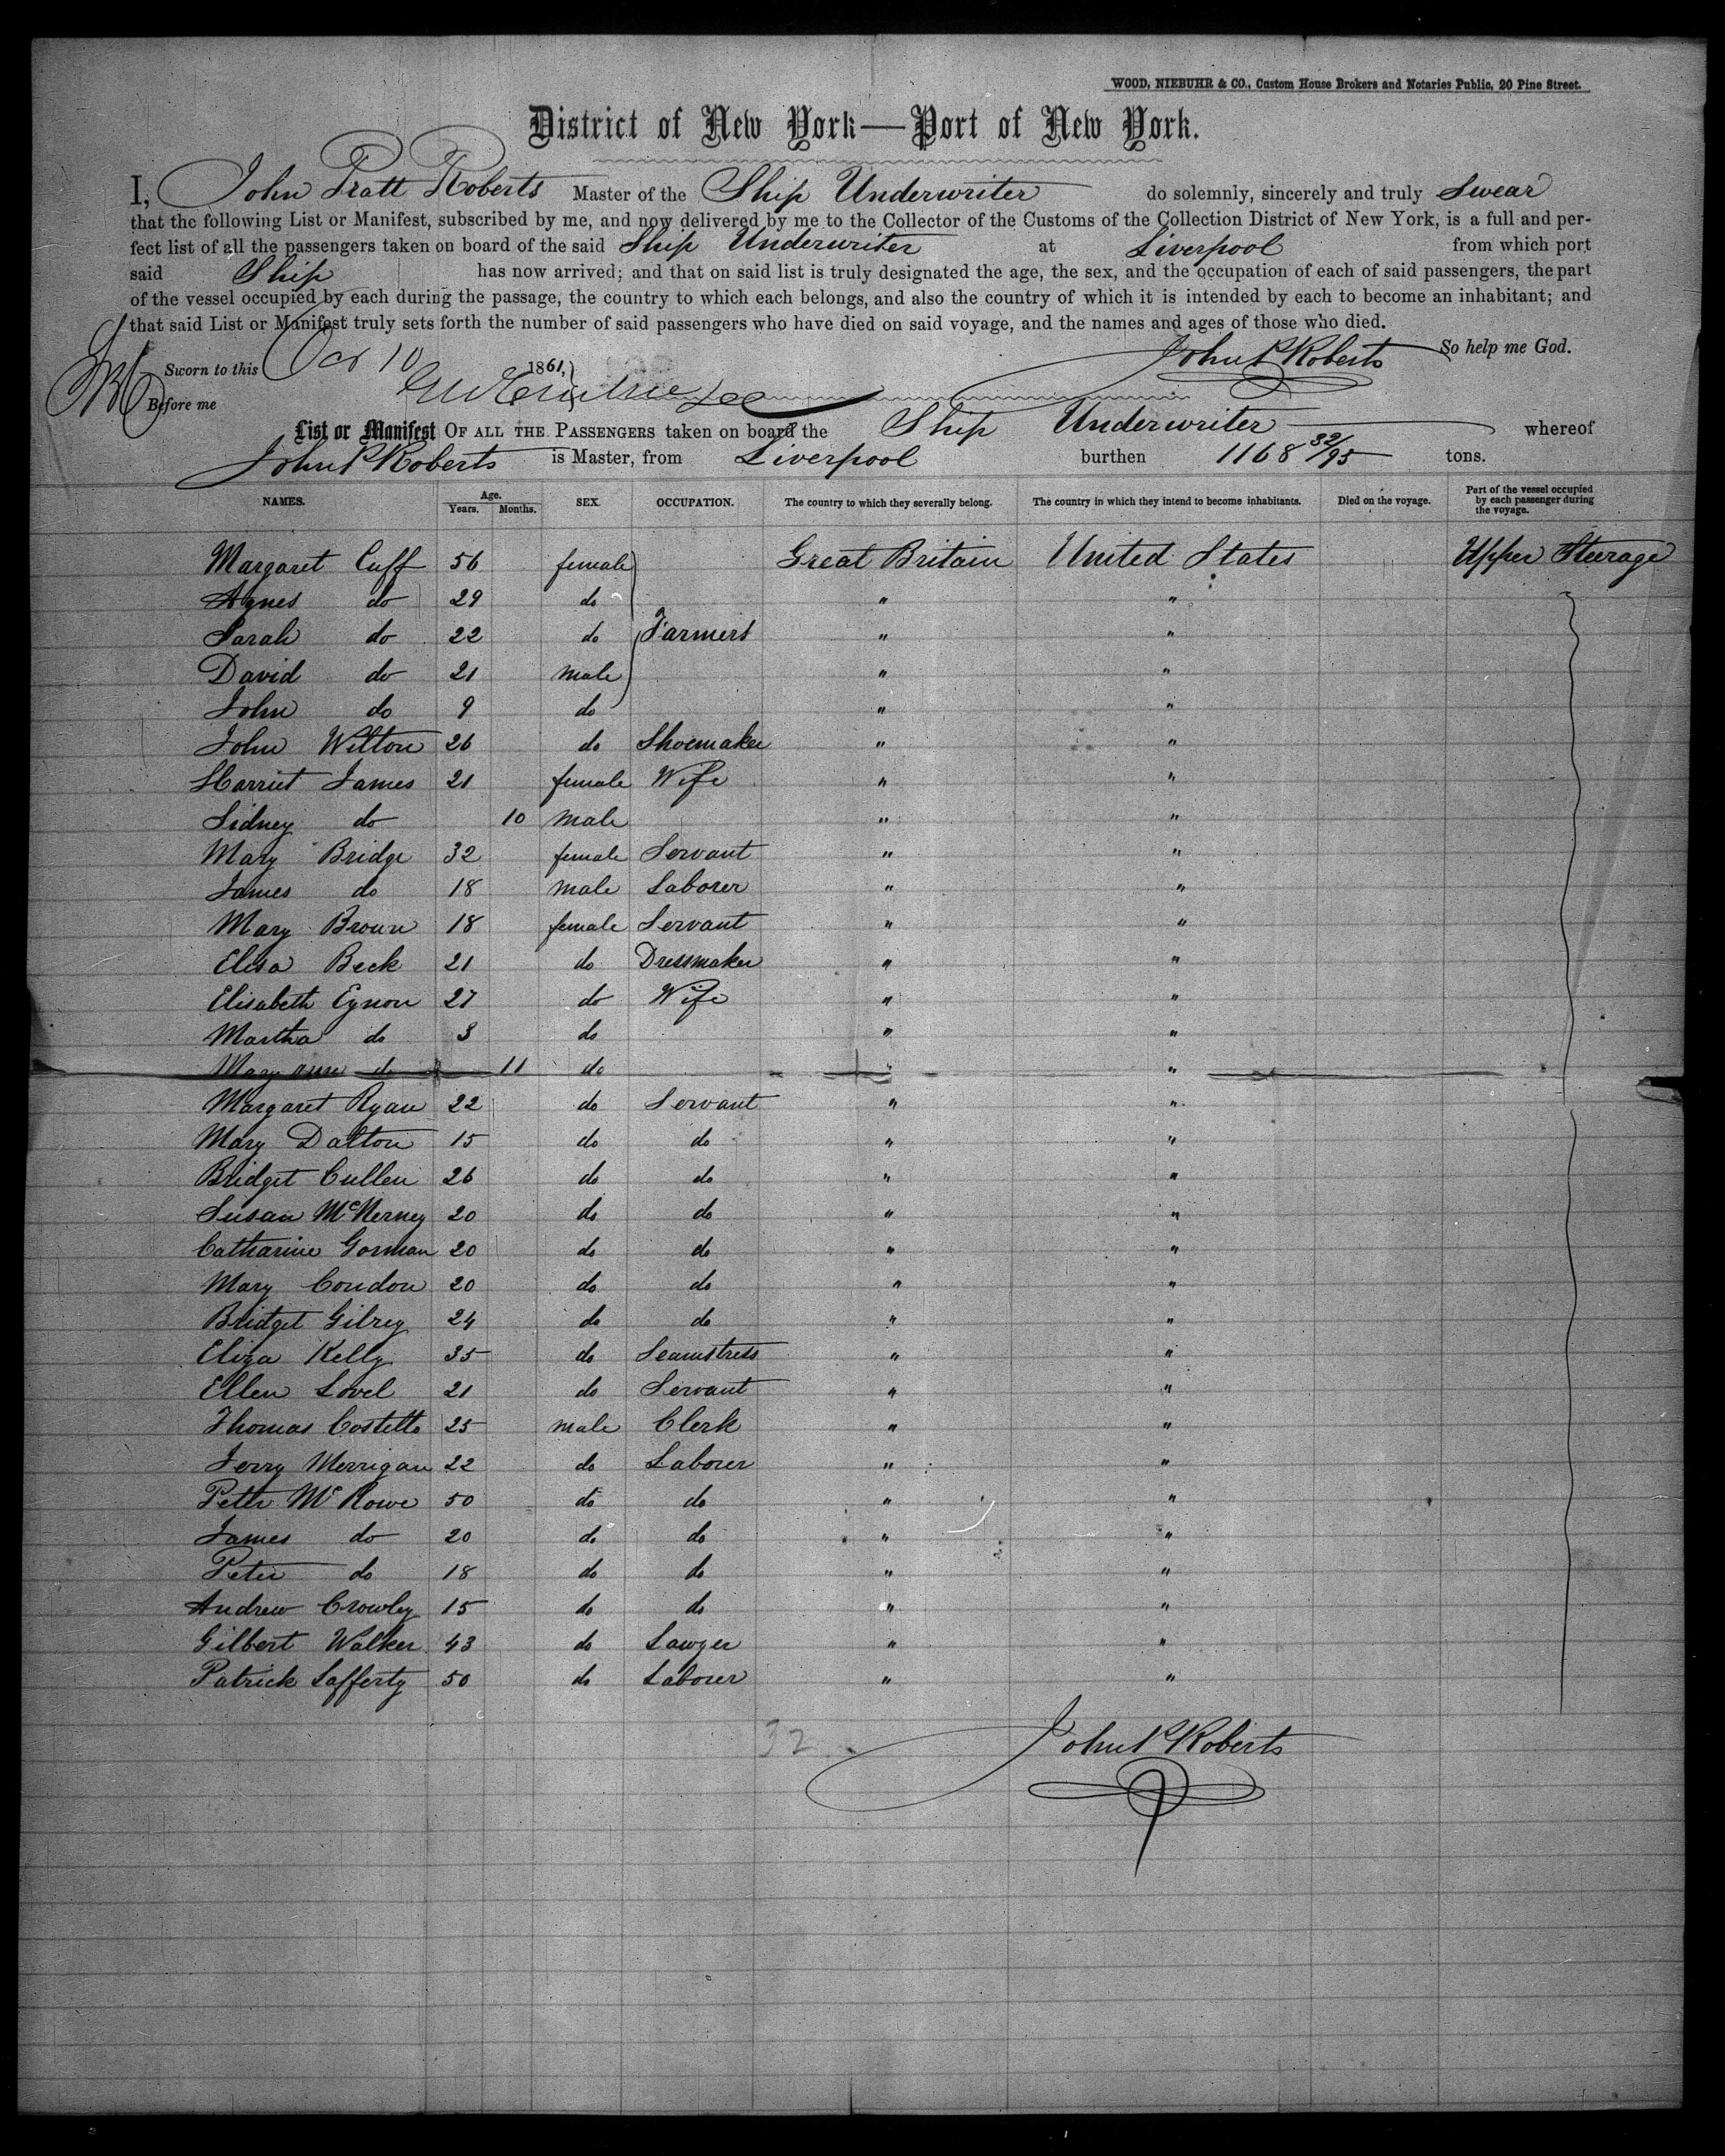 WOOD, NIEBUHR & CO., Custom House Brokers and Notaries Public, 20 Pine Street.
District of New York—Port of New York.
I, John Pratt Roberts Master of the Ship Underwriter do solemnly, sincerely and truly Swear
that the following List or Manifest, subscribed by me, and now delivered by me to the Collector of the Customs of the Collection District of New York, is a full and per-
fect list of all the passengers taken on board of the said Ship Underwriter at Liverpool from which port
said Ship has now arrived; and that on said list is truly designated the age, the sex, and the occupation of each of said passengers, the part
of the vessel occupied by each during the passage, the country to which each belongs, and also the country of which it is intended by each to become an inhabitant; and
that said List or Manifest truly sets forth the number of said passengers who have died on said voyage, and the names and ages of those who died.
So help me God.
Sworn to this Oct 10 1861, John P Roberts
Before me
List or Manifest OF ALL THE PASSENGERS taken on board the Ship Underwriter whereof
John P Roberts is Master, from Liverpool burthen 1168 32/95 tons.
NAMES. Age. Years. Months. SEX. OCCUPATION. The country to which they severally belong. The country in which they intend to become inhabitants. Died on the voyage. Part of the vessel occupied by each passenger during the voyage.
Margaret Cuff 56 female Great Britain United States Upper Steerage
Agnes do 29 do " "
Sarah do 22 do Farmers " "
David do 21 male " "
John do 9 do " "
John Witton 26 do Shoemaker " "
Harriet James 21 female Wife " "
Sidney do 10 male " "
Mary Bridge 32 female Servant " "
James do 18 male Laborer " "
Mary Broun 18 female Servant " "
Elisa Beck 21 do Dressmaker " "
Elisabeth Eynon 27 do Wife " "
Martha do 3 do " "
Mary ann do 11 do " "
Margaret Ryan 22 do Servant " "
Mary Dalton 15 do do " "
Bridget Cullen 26 do do " "
Susan McNerney 20 do do " "
Catharine Gorman 20 do do " "
Mary Condon 20 do do " "
Bridget Gilrey 24 do do " "
Eliza Kelly 35 do Seamstress " "
Ellen Lovel 21 do Servant " "
Thomas Costello 25 male Clerk " "
Jerry Merrigan 22 do Laborer " "
Peter McRowe 50 do do " "
James do 20 do do " "
Peter do 18 do do " "
Andrew Crowley 15 do do " "
Gilbert Walker 43 do Lawyer " "
Patrick Lafferty 50 do Laborer " "
32
John P Roberts